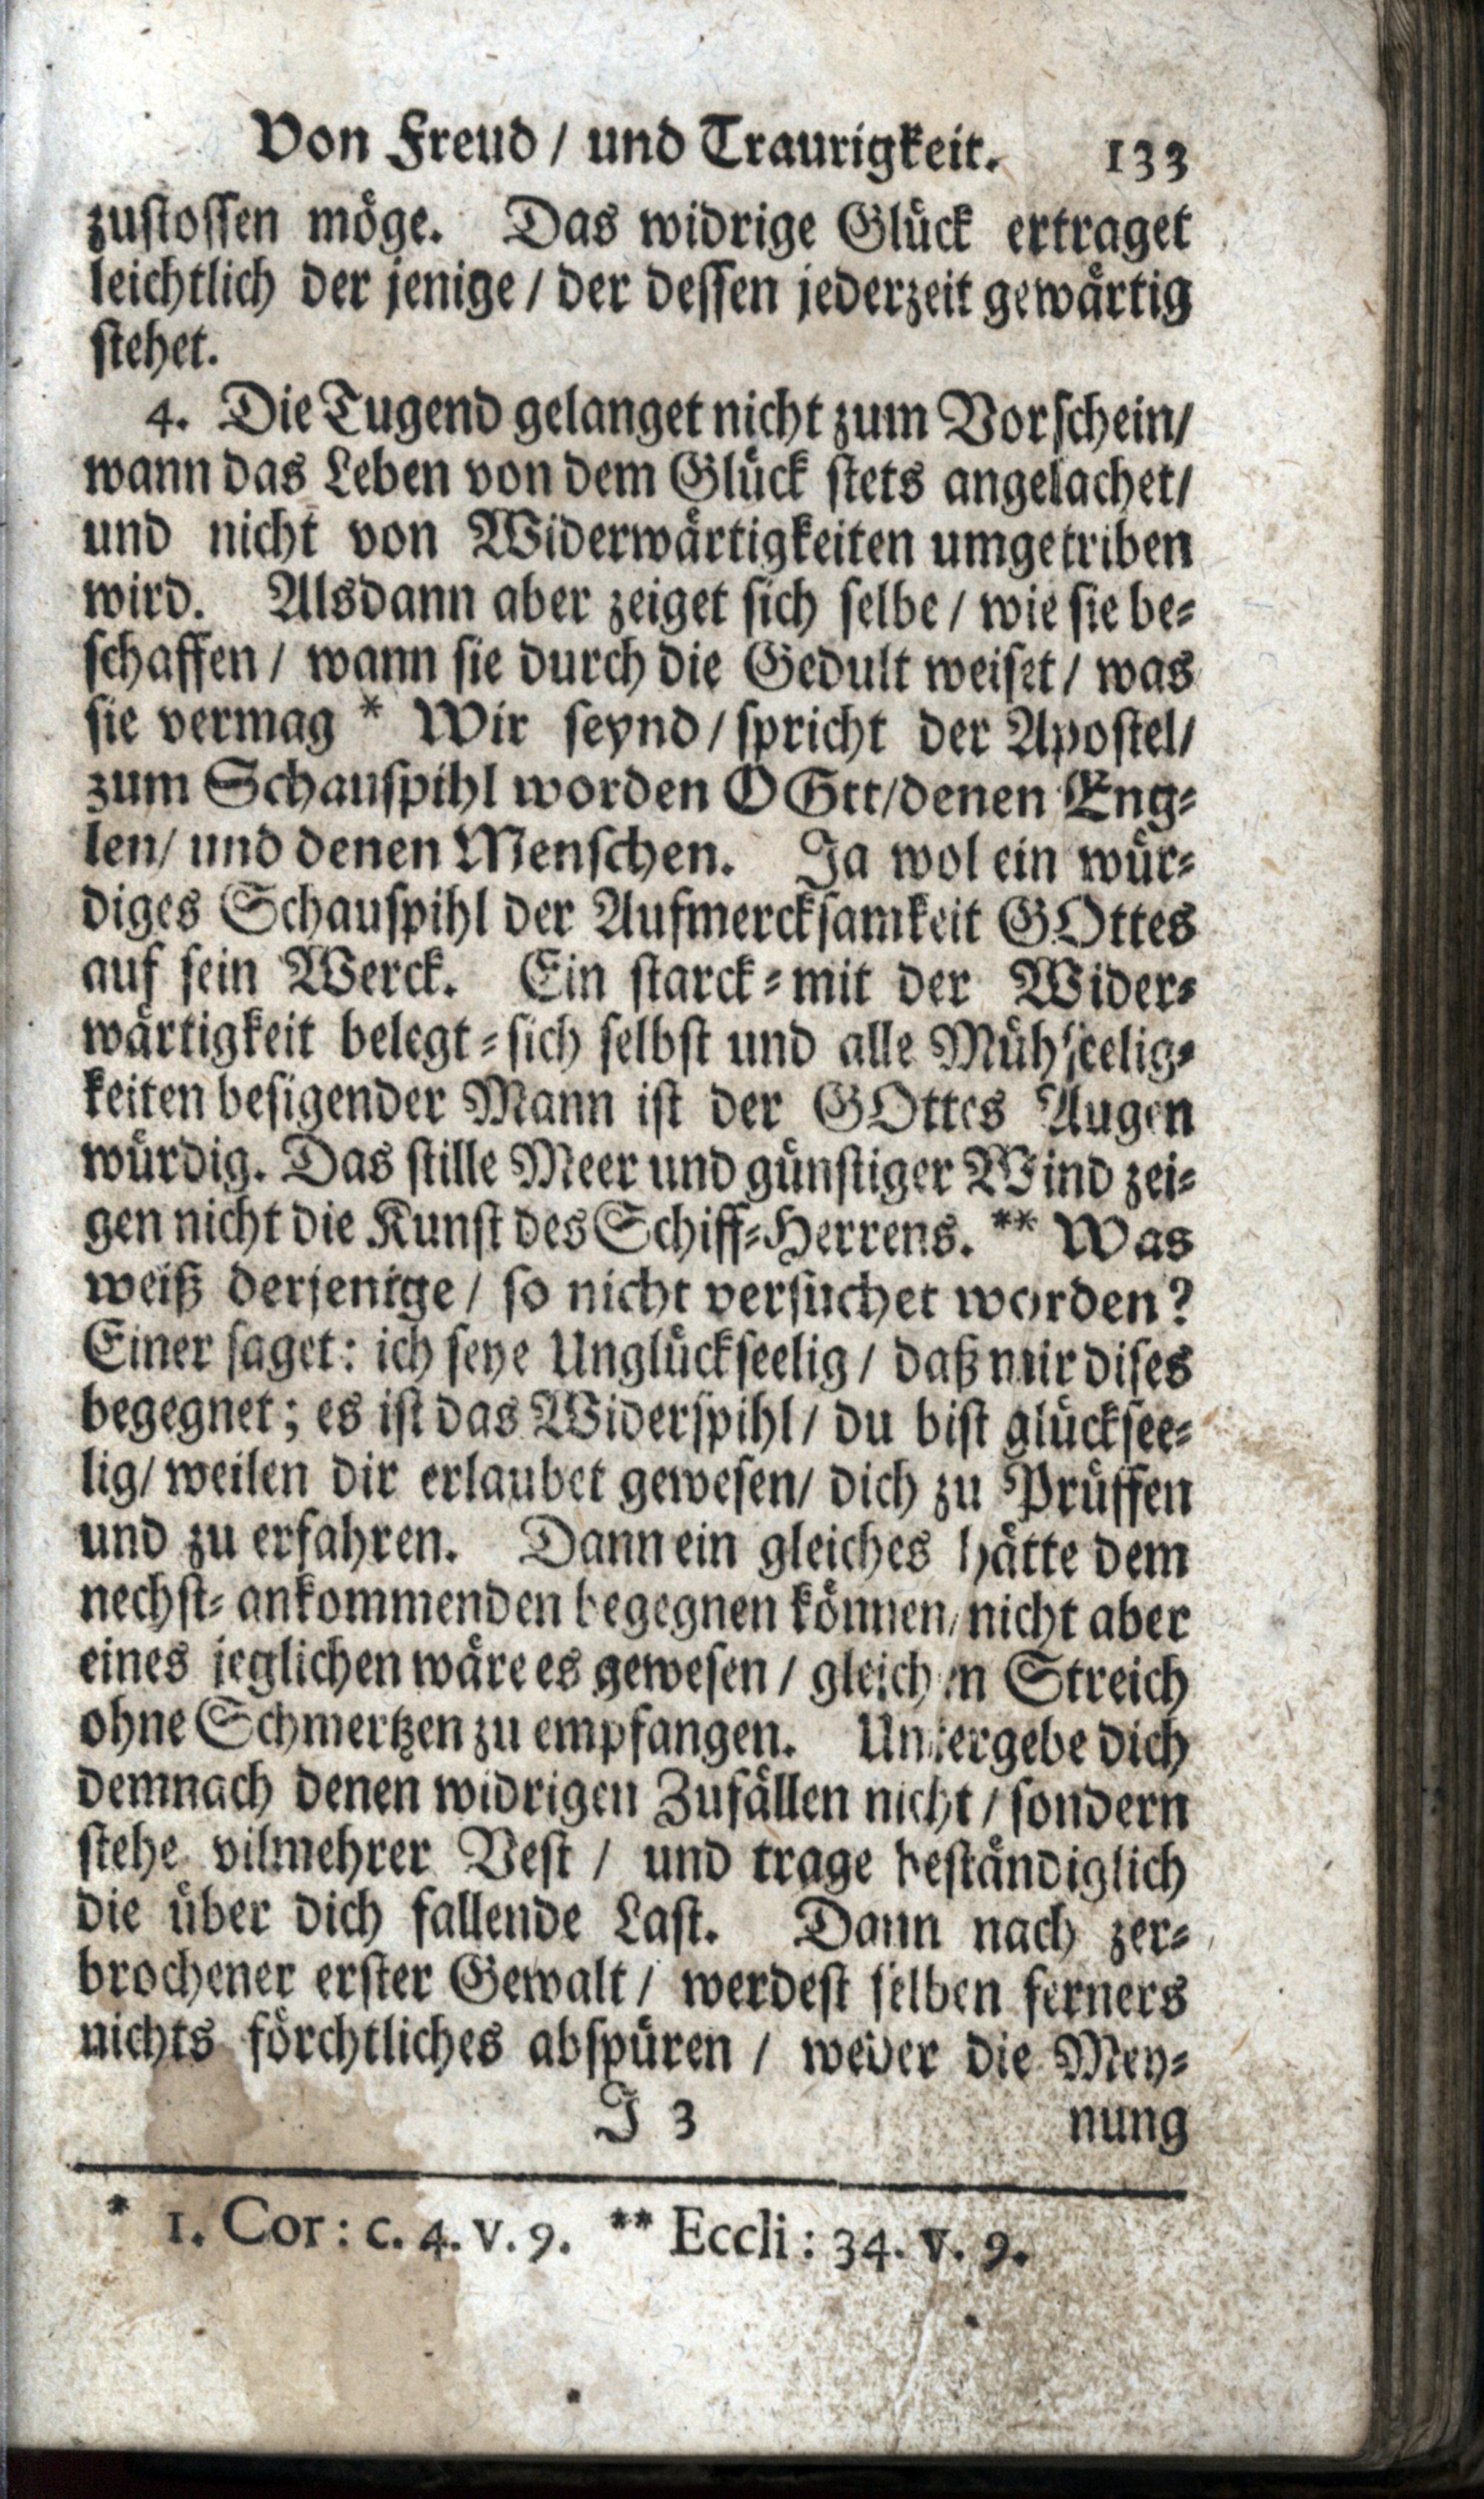 Von Freud / und Traurigkeit. 133
zustossen möge. Das widrige Glück ertraget
leichtlich der jenige / der dessen jederzeit gewärtig
stehet.
4. Die Tugend gelanget nicht zum Vorschein/
wann das Leben von dem Glück stets angelachet/
und nicht von Widerwärtigkeiten umgetriben
wird. Alsdann aber zeiget sich selbe / wie sie be-
schaffen / wann sie durch die Gedult weiset / was
sie vermag * Wir seynd / spricht der Apostel/
zum Schauspihl worden OGtt/denen Eng-
len/ und denen Menschen. Ja wol ein wür-
diges Schauspihl der Aufmercksamkeit GOttes
auf sein Werck. Ein starck-mit der Wider-
wärtigkeit belegt-sich selbst und alle Mühseelig-
keiten besigender Mann ist der GOttes Augen
würdig. Das stille Meer und günstiger Wind zei-
gen nicht die Kunst des Schiff-Herrens. ** Was
weiß derjenige / so nicht versuchet worden?
Einer saget: ich seye Unglückseelig / daß mir dises
begegnet; es ist das Widerspihl / du bist glücksee-
lig/ weilen dir erlaubet gewesen/ dich zu Prüffen
und zu erfahren. Dann ein gleiches hätte dem
nechst-ankommenden begegnen können/ nicht aber
eines jeglichen wäre es gewesen / gleichen Streich
ohne Schmertzen zu empfangen. Untergebe dich
demnach denen widrigen Zufällen nicht / sondern
stehe vilmehrer Vest / und trage beständiglich
die über dich fallende Last. Dann nach zer-
brochener erster Gewalt / werdest selben ferners
nichts förchtliches abspüren / weder die Mey-
J 3 nung
* 1. Cor: c. 4. v. 9. ** Eccli: 34. v. 9.